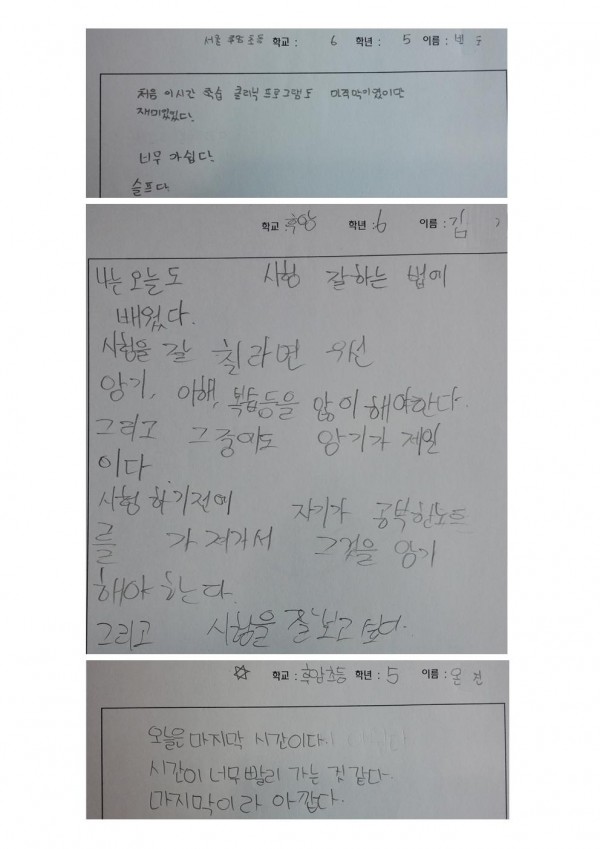 서울 후암 초등 학교 : 6 학년 : 5 이름 :
처음 이시간 학습 클리닉 프로그램도 마직막이였이만
재미있었다.
너무 가쉽다.
슬프다.
학교 : 후암 학년 : 6 이름 : 김
나는 오늘도 시험 잘하는 법에
배웠다.
시험을 잘 칠라면 우선
암기, 이해, 복습등을 많이 해야한다.
그리고 그중이도 암기가 제일
이다
시험 하기전에 자기가 공부한노트
를 가져가서 그것을 암기
해야 한다.
그리고 시험을 잘보고 싶다.
☆ 학교 : 후암초등 학년 : 5 이름 : 온
오늘은 마지막 시간이다.
시간이 너무빨리 가는 것 같다.
마지막이라 아깝다.